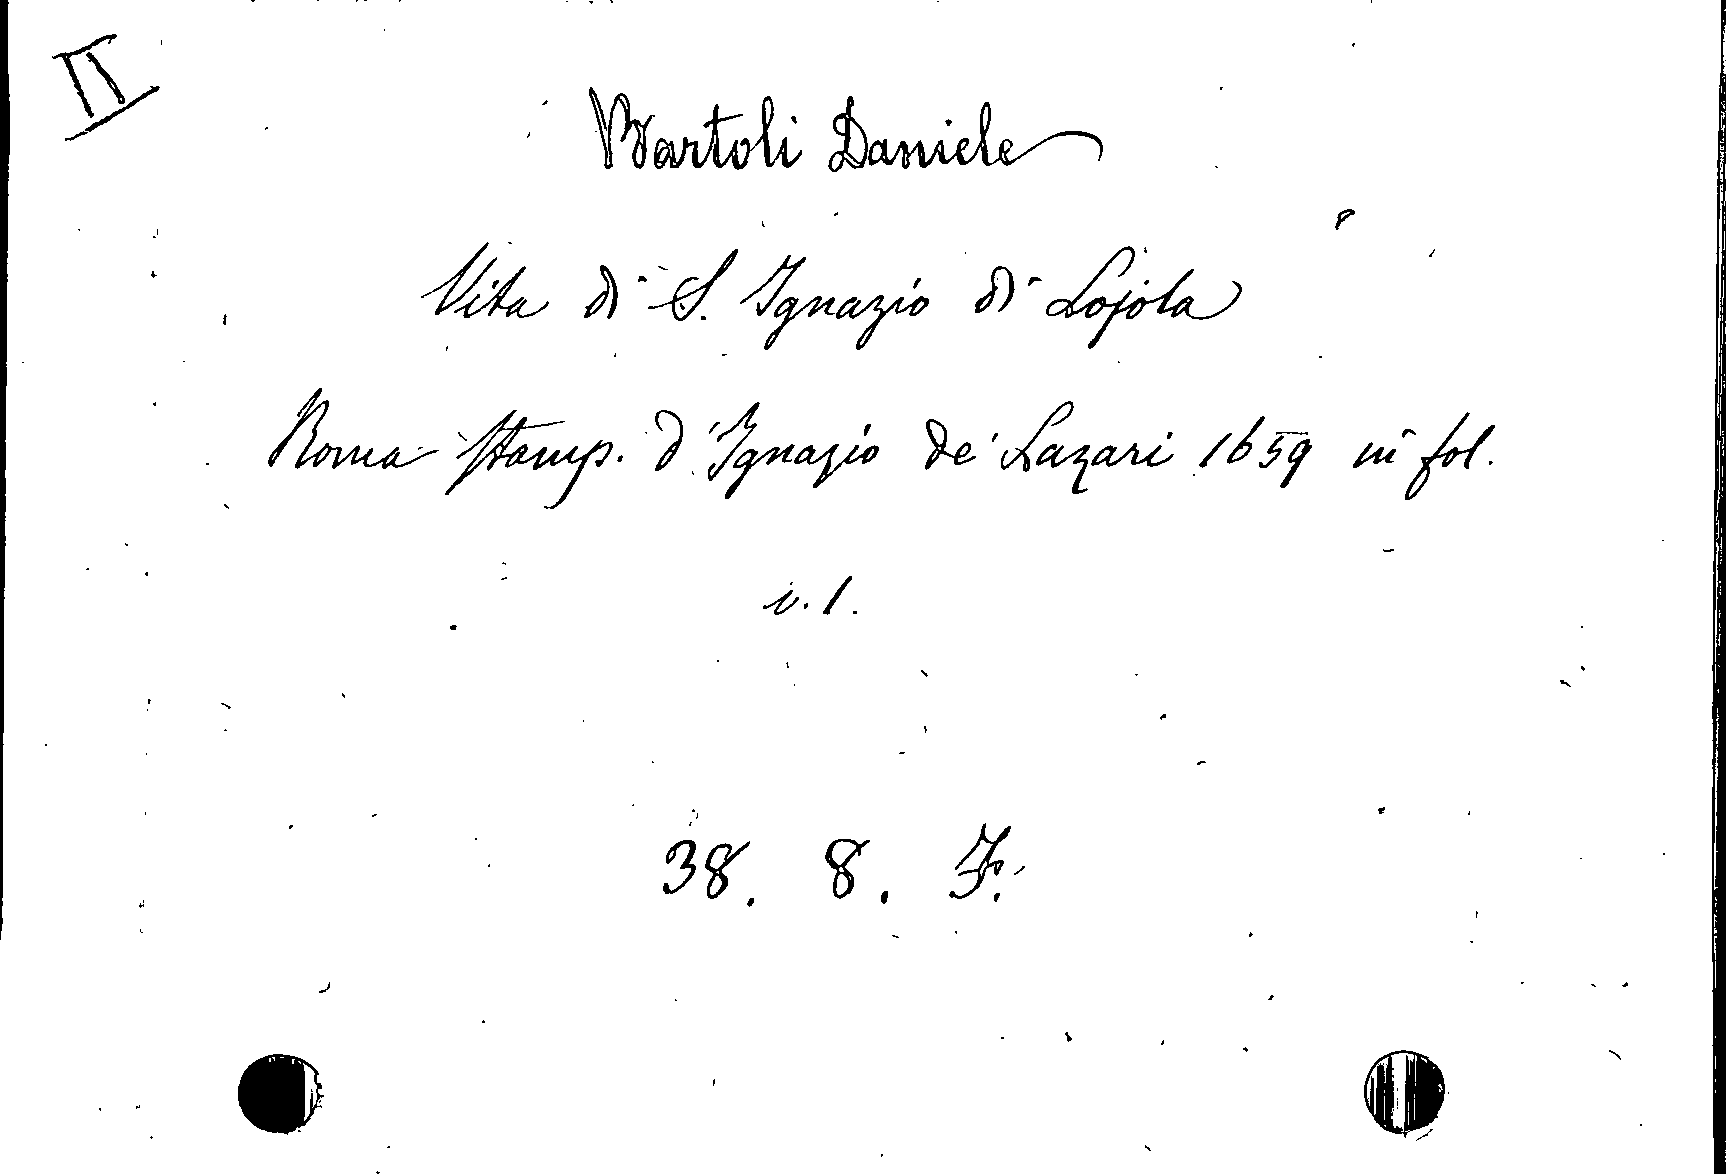 II
Bartoli Daniele
Vita di S. Ignazio di Lojola
Roma Stamp. d'Ignazio de' Lazari 1659 in fol.
v. 1.
38. 8. F.